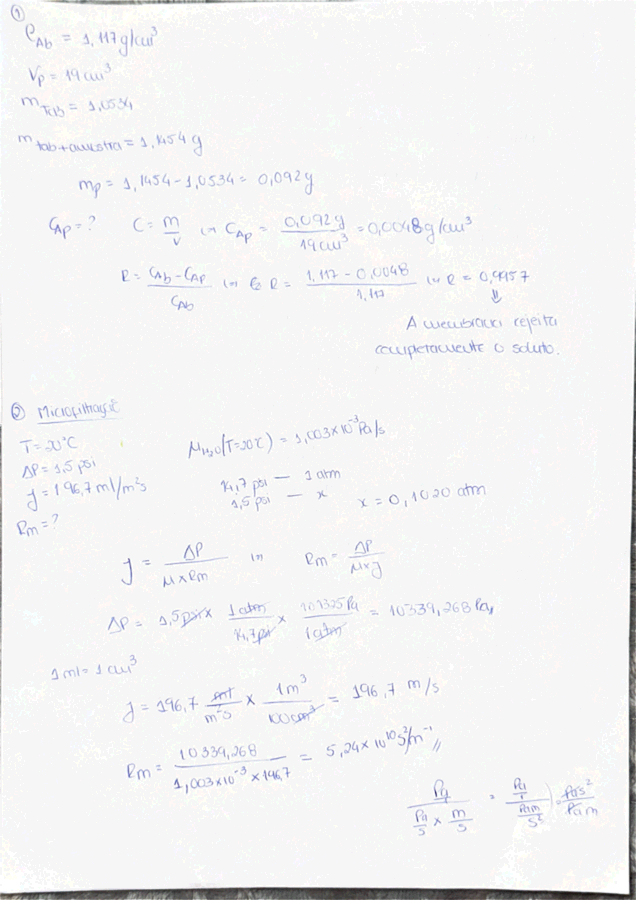 ①
ρAb = 1,117 g/cm³
Vp = 19 cm³
m Tab = 1,0534
m tab+amostra = 1,1454 g
mp = 1,1454 - 1,0534 = 0,092 g
CAp = ? C = m/v CAp = 0,092 g / 19 cm³ = 0,0048 g/cm³
R = (CAb - CAp) / CAb R = (1,117 - 0,0048) / 1,117 R = 0,9957
⇓
A membrana rejeita
completamente o soluto.
② Microfiltração
T = 20°C μH2O (T=20°C) = 1,003 × 10⁻³ Pa/s
ΔP = 1,5 psi
J = 196,7 ml/m²s 14,7 psi — 1 atm
1,5 psi — x x = 0,1020 atm
Rm = ?
J = ΔP / (μ × Rm) Rm = ΔP / (μ × J)
ΔP = 1,5 psi × 1 atm / 14,7 psi × 101325 Pa / 1 atm = 10339,268 Pa
1 ml = 1 cm³
J = 196,7 ml / m²s × 1 m³ / 100 cm³ = 196,7 m/s
Rm = 10339,268 / (1,003 × 10⁻³ × 196,7) = 5,24 × 10¹⁰ s²/m⁻¹ //
Pa / (Pa/s × m/s) = (Pa/1) / (Pa m/s²) = Pa s² / Pa m